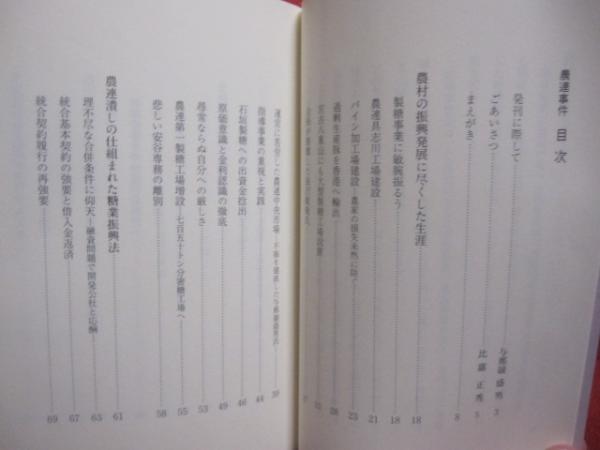 農連事件 目次
発刊に際して 3
ごあいさつ 比嘉 正秀 5
まえがき 8
農村の振興発展に尽くした生涯 18
製糖事業に敏腕振るう 18
農連具志川工場建設 21
パイン工場建設 農家の損失未然に防ぐ 23
過剰生産豚を香港へ輸出 28
指導事業の重視と実践 44
石垣製糖への出資金捻出 46
原価意識と金利認識の徹底 49
尋常ならぬ自分への厳しさ 53
農連第一製糖工場増設 七百五十トン分密糖工場へ 55
悲しい安谷専務の離別 58
農連潰しの仕組まれた糖業振興法 61
理不尽な合併条件に仰天 ―融資問題で開発公社と応酬 63
統合基本契約の強要と借入金返済 67
統合契約履行の再強要 69